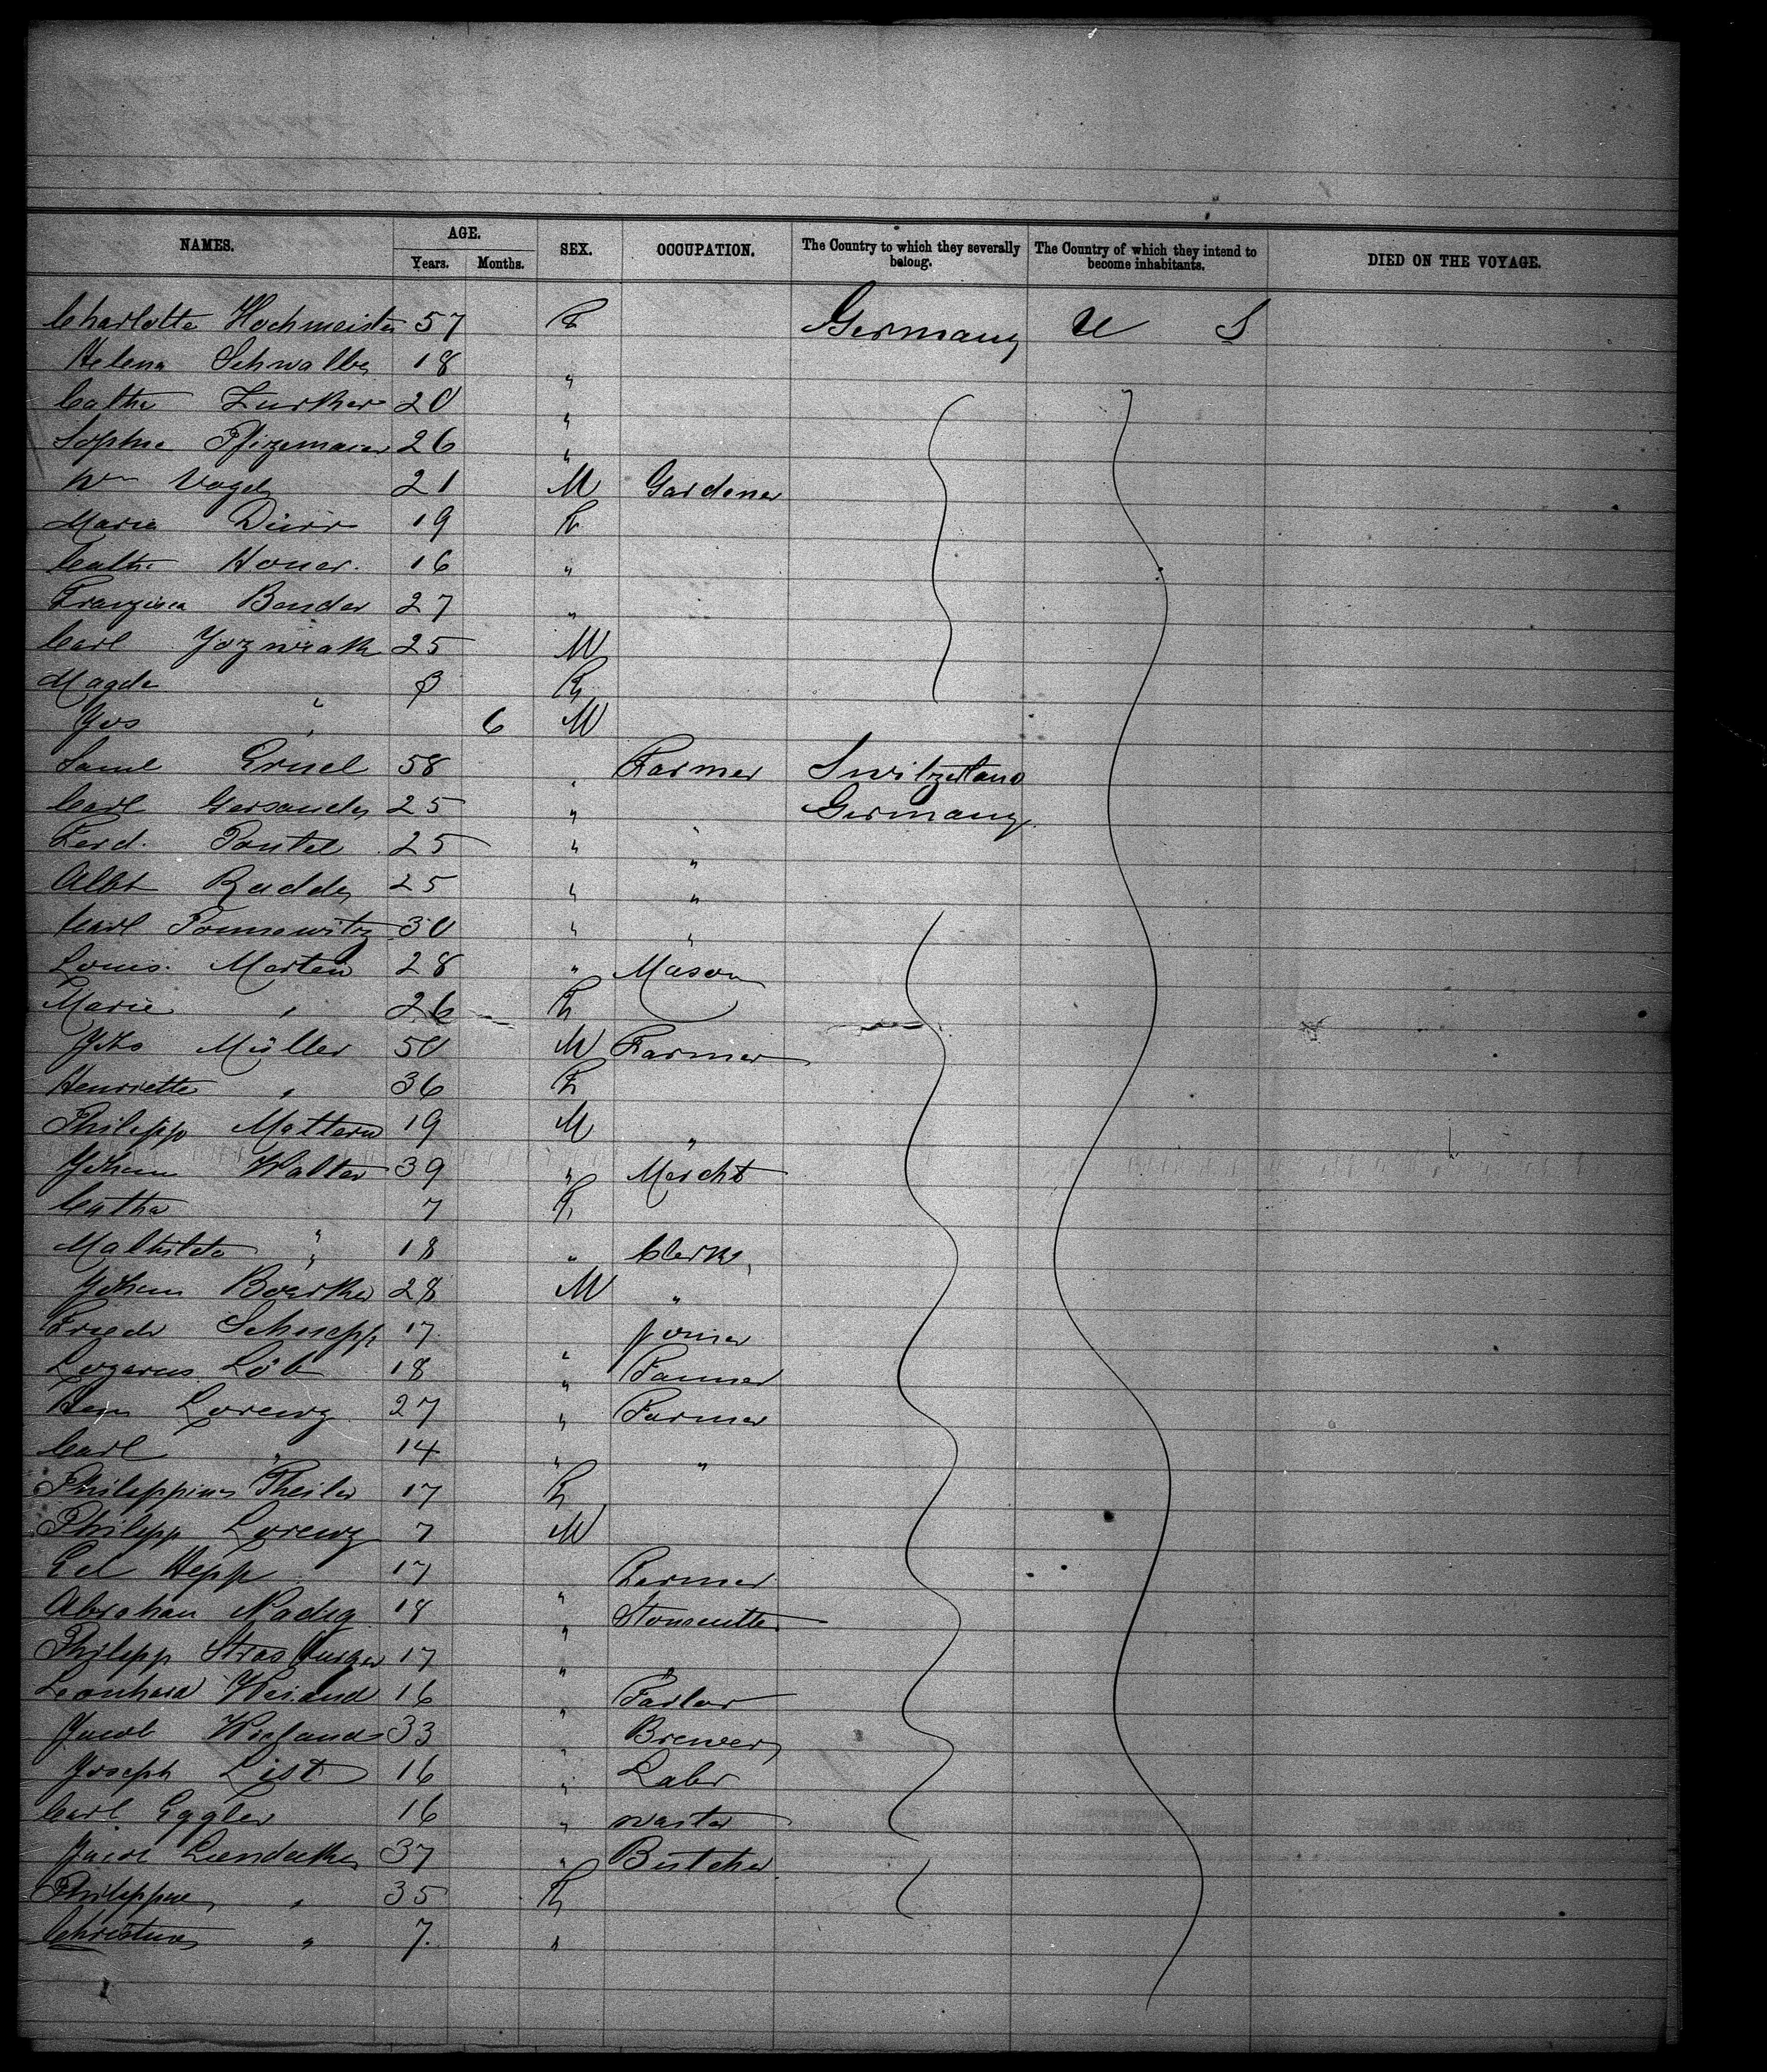 NAMES. AGE. SEX. OCCUPATION. The Country to which they severally belong. The Country of which they intend to become inhabitants. DIED ON THE VOYAGE.
Years. Months.
Charlotte Hochmeister 57 F Germany U S
Helena Schwalbe 18 "
Cathe Zurker 20 "
Sophie Pfizemaier 26 "
Wm Vogel 21 M Gardener
Maria Dürr 19 F
Cathe Honer. 16 "
Franzisca Bender 27 "
Carl Jozwiak 25 M
Magda " F
Jos " 6 M
Saml Gruel 58 " Farmer Switzerland
Carl 25 " " Germany
Ferd. Pautel 25 " "
Albt Radde 25 " "
Carl 30 " "
Louis. Martin 28 " Mason
Marie " 26 F
Johs Müller 50 M Farmer
Henriette " 36 F
Philipp Mattern 19 M "
Johann Walter 39 " Mercht
Catha " 7 F
Mathilde " 18 " Clerk
Johann Boerker 28 M "
Friedr Schnepp 17 " Joiner
Lazarus Löb 18 " Tanner
Lorenz 27 " Farmer
Carl " 14 " "
Philippine Theiler 17 F
Philipp Lorenz 7 M
Ed Hepp 17 " Farmer
Abraham Nadig 18 " Stonecutter
Philipp Strasburger 17 " "
Leonhard Weiand 16 " Tailor
Jacob Wiegand 33 " Brewer
Joseph List 16 " Labr
Carl Eggler 16 " waiter
Jacob 37 " Butcher
Philippine " 35 F
Christine " 7. "